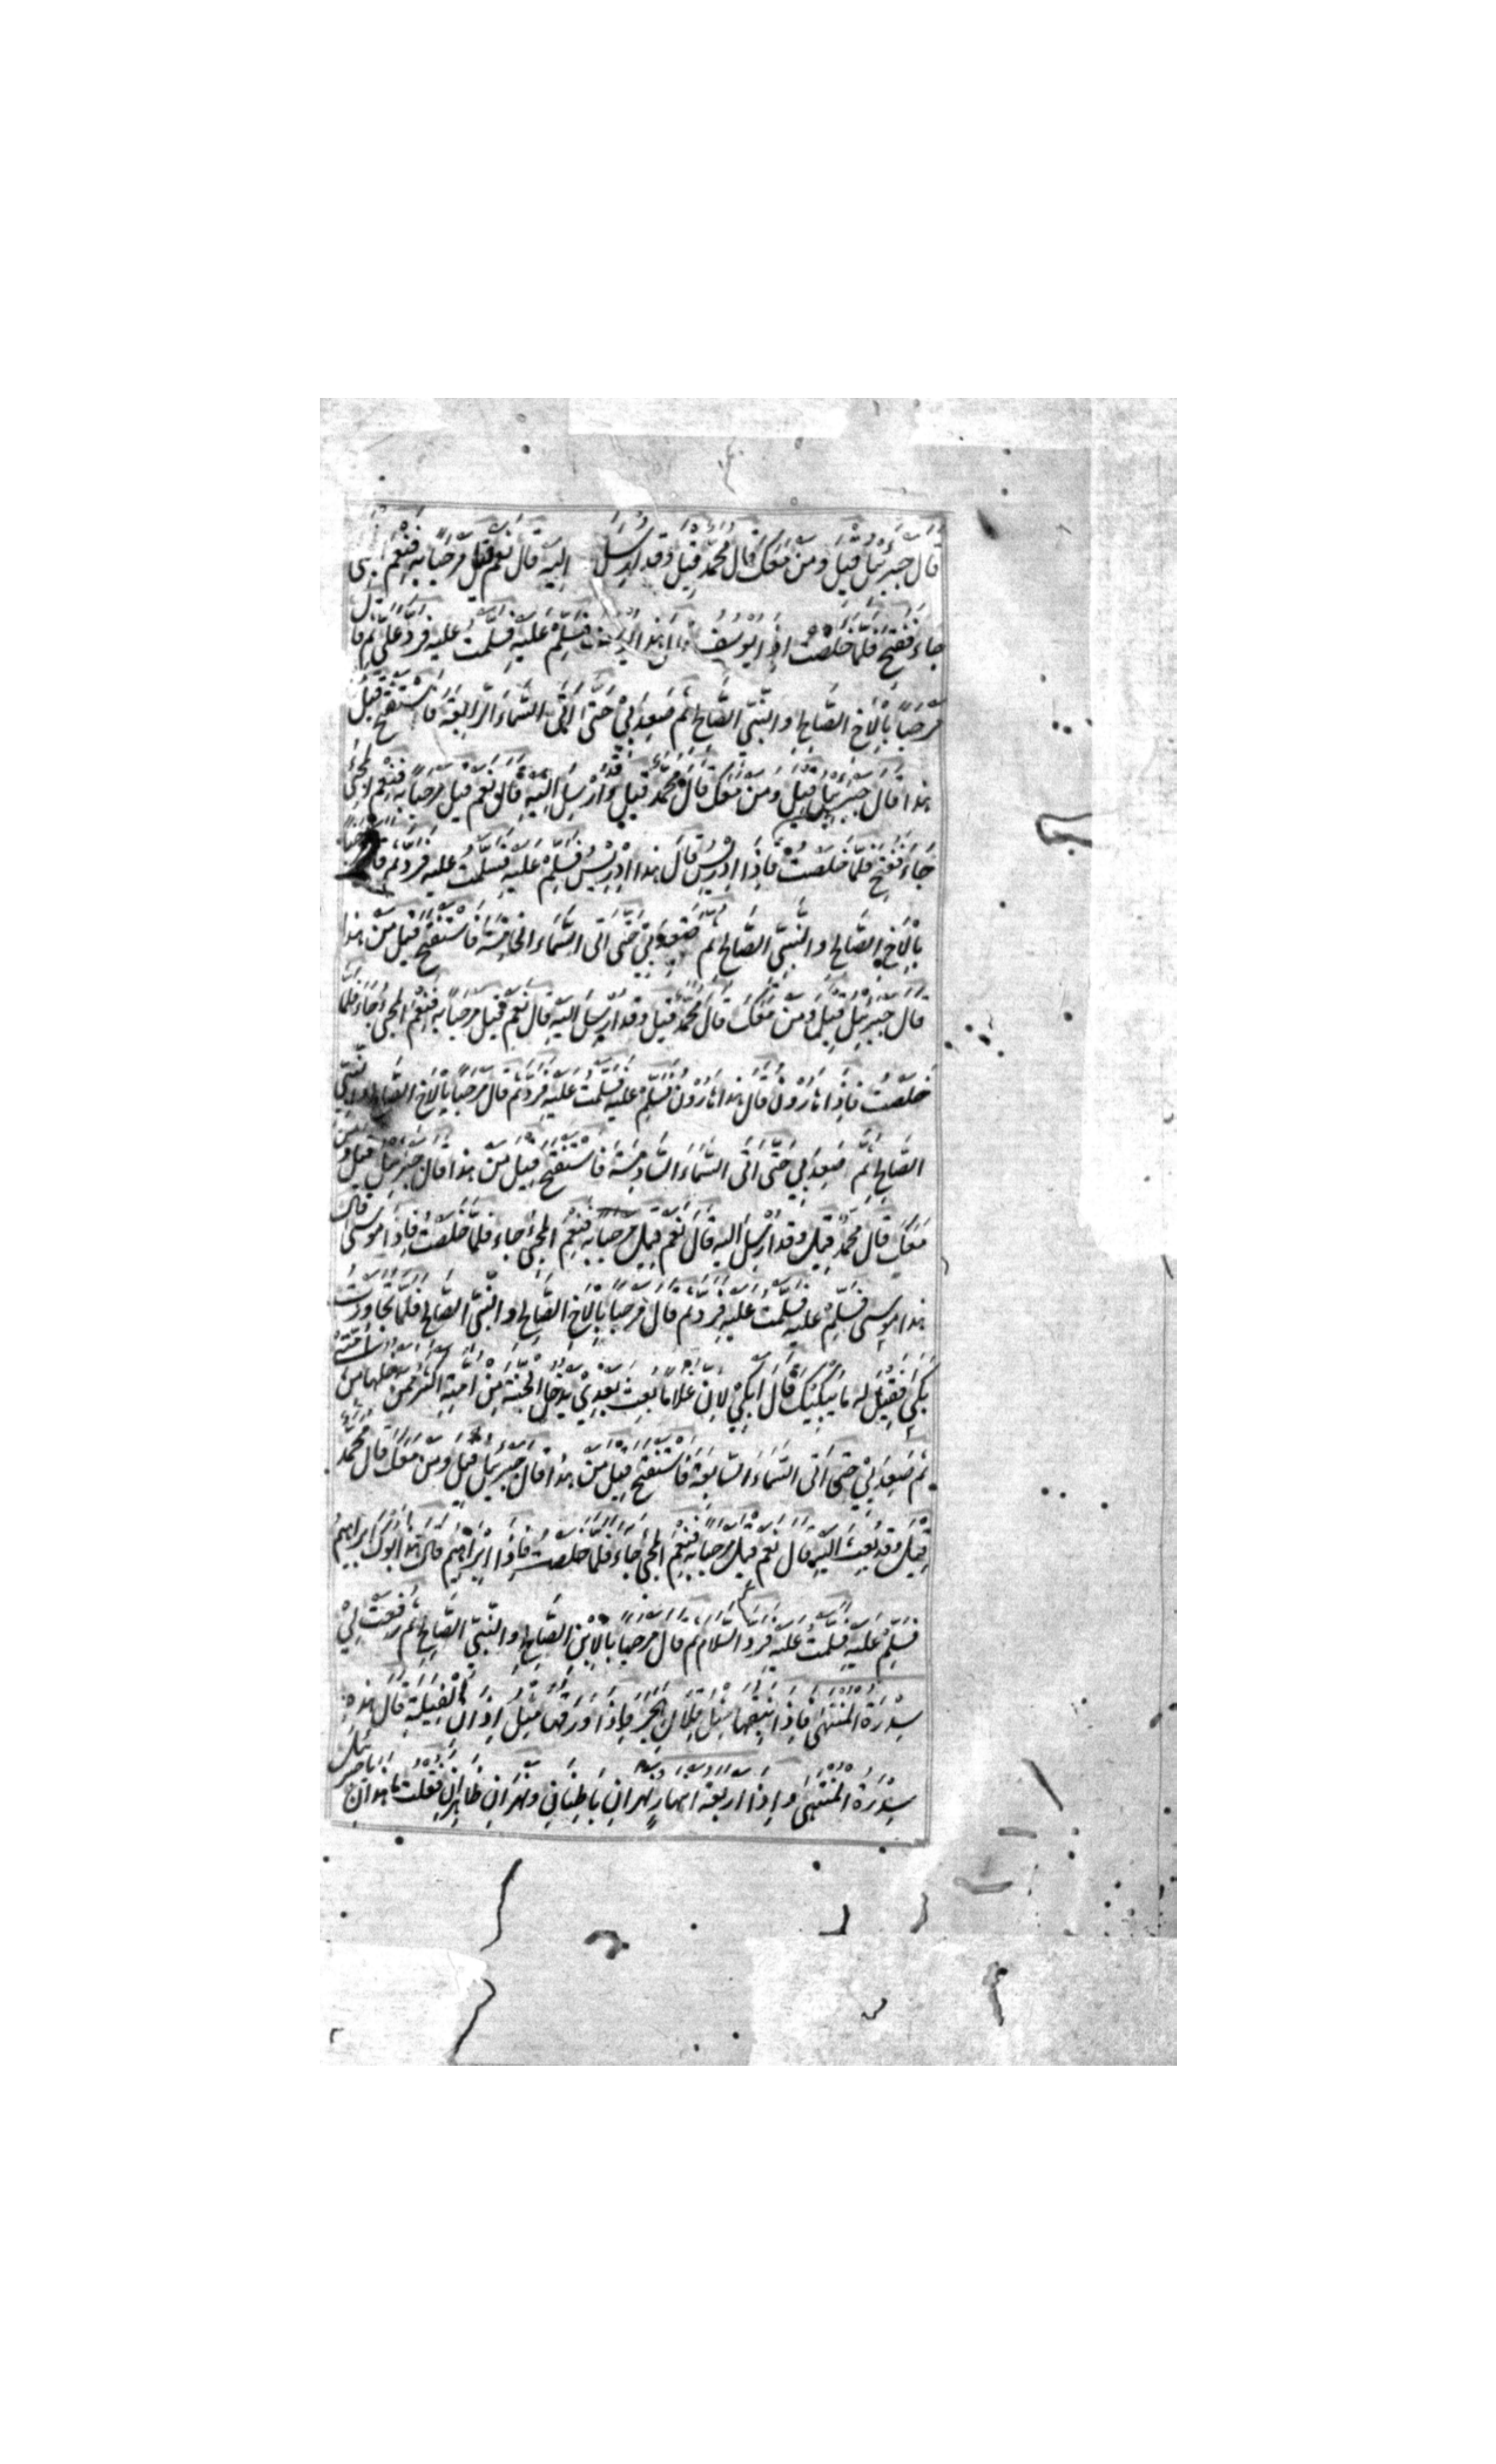 قَالَ جِبْرَئِيْلُ قِيْلَ وَمَنْ مَعَكَ قَالَ مُحَمَّدٌ قِيْلَ وَقَدْ اُرْسِلَ اِلَيْهِ قَالَ نَعَمْ قِيْلَ مَرْحَبًا بِهِ فَنِعْمَ
جَاءَ فَفُتِحَ فَلَمَّا خَلَصْتُ اِذَا يُوسُفُ قال هذا يوسف فَسَلِّمْ عَلَيْهِ فَسَلَّمْتُ عَلَيْهِ فَرَدَّ عَلَيَّ ثُمَّ قَالَ
مَرْحَبًا بِالْاَخِ الصَّالِحِ وَالنَّبِيِّ الصَّالِحِ ثُمَّ صَعِدَ بِيْ حَتّٰى اَتَى السَّمَاءَ الرَّابِعَةَ فَاسْتَفْتَحَ قِيْلَ
هٰذَا قَالَ جِبْرَئِيْلُ قِيْلَ وَمَنْ مَعَكَ قَالَ مُحَمَّدٌ قِيْلَ وَقَدْ اُرْسِلَ اِلَيْهِ قَالَ نَعَمْ قِيْلَ مَرْحَبًا بِهِ فَنِعْمَ الْمَجِيْءُ
جَاءَ فَفُتِحَ فَلَمَّا خَلَصْتُ فَاِذَا اِدْرِيْسُ قَالَ هٰذَا اِدْرِيْسُ فَسَلِّمْ عَلَيْهِ فَسَلَّمْتُ عَلَيْهِ فَرَدَّ ثُمَّ قَالَ
بِالْاَخِ الصَّالِحِ وَالنَّبِيِّ الصَّالِحِ ثُمَّ صَعِدَ بِيْ حَتّٰى اَتَى السَّمَاءَ الْخَامِسَةَ فَاسْتَفْتَحَ قِيْلَ مَنْ هٰذَا
قَالَ جِبْرَئِيْلُ قِيْلَ وَمَنْ مَعَكَ قَالَ مُحَمَّدٌ قِيْلَ وَقَدْ اُرْسِلَ اِلَيْهِ قَالَ نَعَمْ قِيْلَ مَرْحَبًا بِهِ فَنِعْمَ الْمَجِيْءُ جَاءَ فَلَمَّا
خَلَصْتُ فَاِذَا هَارُوْنُ قَالَ هٰذَا هَارُوْنُ فَسَلِّمْ عَلَيْهِ فَسَلَّمْتُ عَلَيْهِ فَرَدَّ ثُمَّ قَالَ مَرْحَبًا بِالْاَخِ الصَّالِحِ وَالنَّبِيِّ
الصَّالِحِ ثُمَّ صَعِدَ بِيْ حَتّٰى اَتَى السَّمَاءَ السَّادِسَةَ فَاسْتَفْتَحَ قِيْلَ مَنْ هٰذَا قَالَ جِبْرَئِيْلُ قِيْلَ وَمَنْ
مَعَكَ قَالَ مُحَمَّدٌ قِيْلَ وَقَدْ اُرْسِلَ اِلَيْهِ قَالَ نَعَمْ قِيْلَ مَرْحَبًا بِهِ فَنِعْمَ الْمَجِيْءُ جَاءَ فَلَمَّا خَلَصْتُ فَاِذَا مُوْسٰى قَالَ
هٰذَا مُوْسٰى فَسَلِّمْ عَلَيْهِ فَسَلَّمْتُ عَلَيْهِ فَرَدَّ ثُمَّ قَالَ مَرْحَبًا بِالْاَخِ الصَّالِحِ وَالنَّبِيِّ الصَّالِحِ فَلَمَّا تَجَاوَزْتُ
بَكٰى فَقِيْلَ لَهُ مَا يُبْكِيْكَ قَالَ اَبْكِيْ لِاَنَّ غُلَامًا بُعِثَ بَعْدِيْ يَدْخُلُ الْجَنَّةَ مِنْ اُمَّتِهِ اَكْثَرُ مِمَّنْ يَدْخُلُهَا مِنْ اُمَّتِيْ
ثُمَّ صَعِدَ بِيْ حَتّٰى اَتَى السَّمَاءَ السَّابِعَةَ فَاسْتَفْتَحَ قِيْلَ مَنْ هٰذَا قَالَ جِبْرَئِيْلُ قِيْلَ وَمَنْ مَعَكَ قَالَ مُحَمَّدٌ
قِيْلَ وَقَدْ بُعِثَ اِلَيْهِ قَالَ نَعَمْ قِيْلَ مَرْحَبًا بِهِ فَنِعْمَ الْمَجِيْءُ جَاءَ فَلَمَّا خَلَصْتُ فَاِذَا اِبْرَاهِيْمُ قَالَ هٰذَا اَبُوْكَ اِبْرَاهِيْمُ
فَسَلِّمْ عَلَيْهِ فَسَلَّمْتُ عَلَيْهِ فَرَدَّ السَّلَامَ ثُمَّ قَالَ مَرْحَبًا بِالْاِبْنِ الصَّالِحِ وَالنَّبِيِّ الصَّالِحِ ثُمَّ رُفِعَتْ لِيْ
سِدْرَةُ الْمُنْتَهٰى فَاِذَا نَبِقُهَا مِثْلُ قِلَالِ هَجَرَ وَاِذَا وَرَقُهَا مِثْلُ اٰذَانِ الْفِيَلَةِ قَالَ هٰذِهِ
سِدْرَةُ الْمُنْتَهٰى وَاِذَا اَرْبَعَةُ اَنْهَارٍ نَهْرَانِ بَاطِنَانِ وَنَهْرَانِ ظَاهِرَانِ فَقُلْتُ مَا هٰذَانِ يَا جِبْرَئِيْلُ